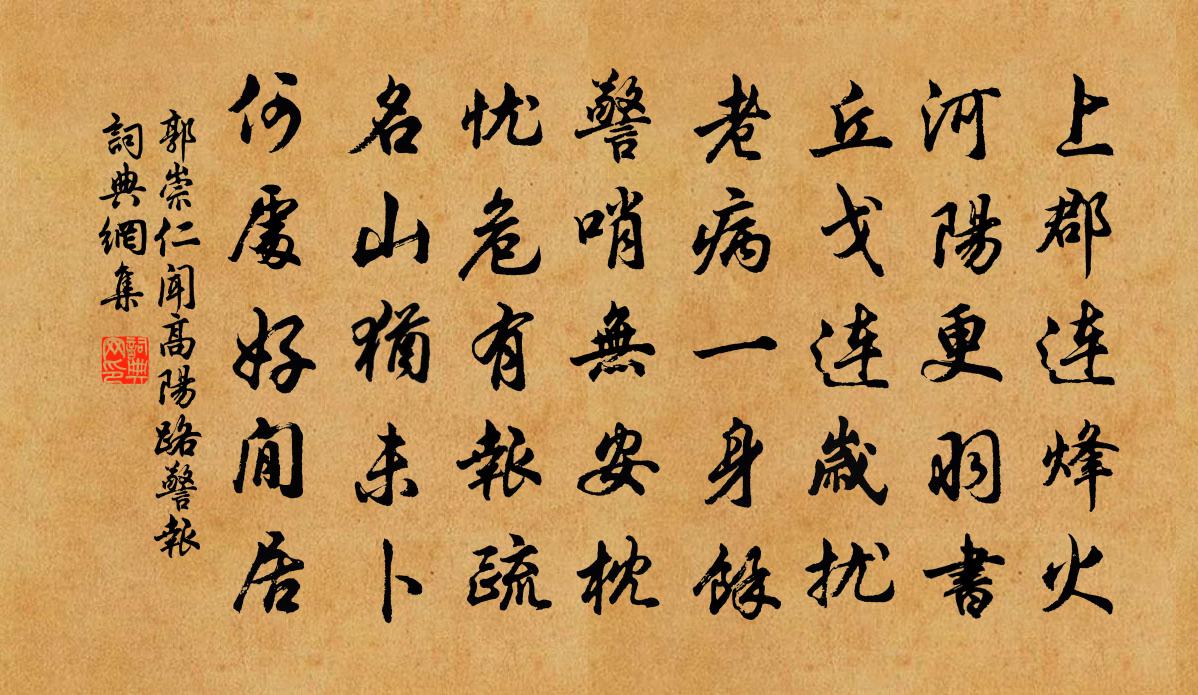 上郡连烽火
河陽更羽書
丘戈连歲扰
老病一身餘
警哨無安枕
忧危有報疏
名山猶未卜
何處好閒居
郭崇仁闻高陽路警報
詞典網集
詞典
网印